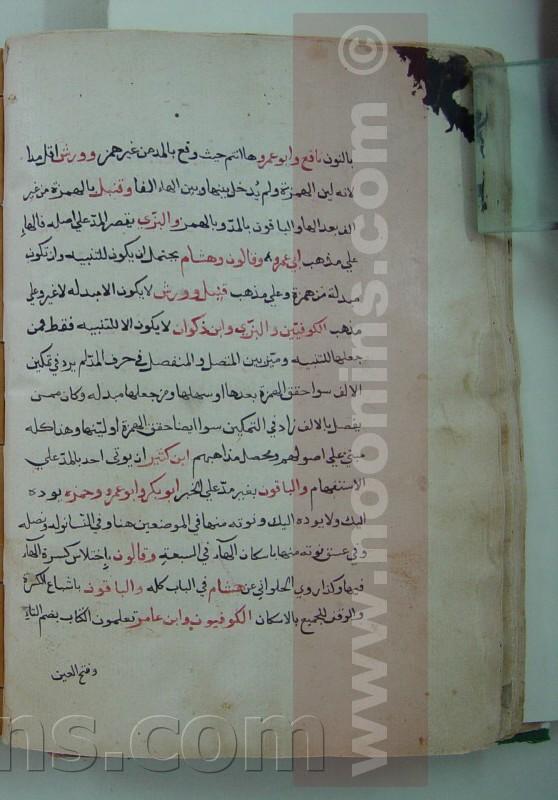 بالنون نافع وابو عمرو هاانتم حيث وقع بالمد من غير همز وورش اقل مدا
لانه لين الهمزة ولم يُدخل بينها وبين الهاء الفا وقنبل بالهمزة من غير
الف بعد الهاء والباقون بالمد وبالهمز والبزي يقصر المد على اصله فالهاء
على مذهب ابي عمرو وقالون وهشام يحتمل ان يكون للتنبيه وان تكون
مبدلة من همزة وعلى مذهب قنبل وورش لا يكون الا مبدله لا غير وعلى
مذهب الكوفيين والبزي وابن ذكوان لا يكون الا للتنبيه فقط فمن
جعلها للتنبيه وميز بين المتصل والمنفصل في حرف المد لم يزد في تمكين
الالف سوا حقق الهمزة بعدها او سهلها ومن جعلها مبدله وكان ممن
يفصل بالالف زاد في التمكين سوا ايضا حقق الهمزة او لينها وهذا كله
مبني على اصولهم ومحصل مذاهبهم ابن كثير ان يوتى احد بالمد على
الاستفهام والباقون بغير مد على الخبر ابو بكر وابو عمرو وحمزه يوده
اليك ولا يوده اليك ونوته منها في الموضعين هنا وفي النسا نوله ونصله
وفي عسق نوته منها باسكان الهاء في السبعة وقالون باختلاس كسرة الهاء
فيها وكذا روى الحلواني عن هشام في الباب كله والباقون باشباع الكسرة
والوقف للجميع بالاسكان الكوفيون وابن عامر تعلمون الكتاب بضم التاء
وفتح العين
www.noonins.com ©
ns.com